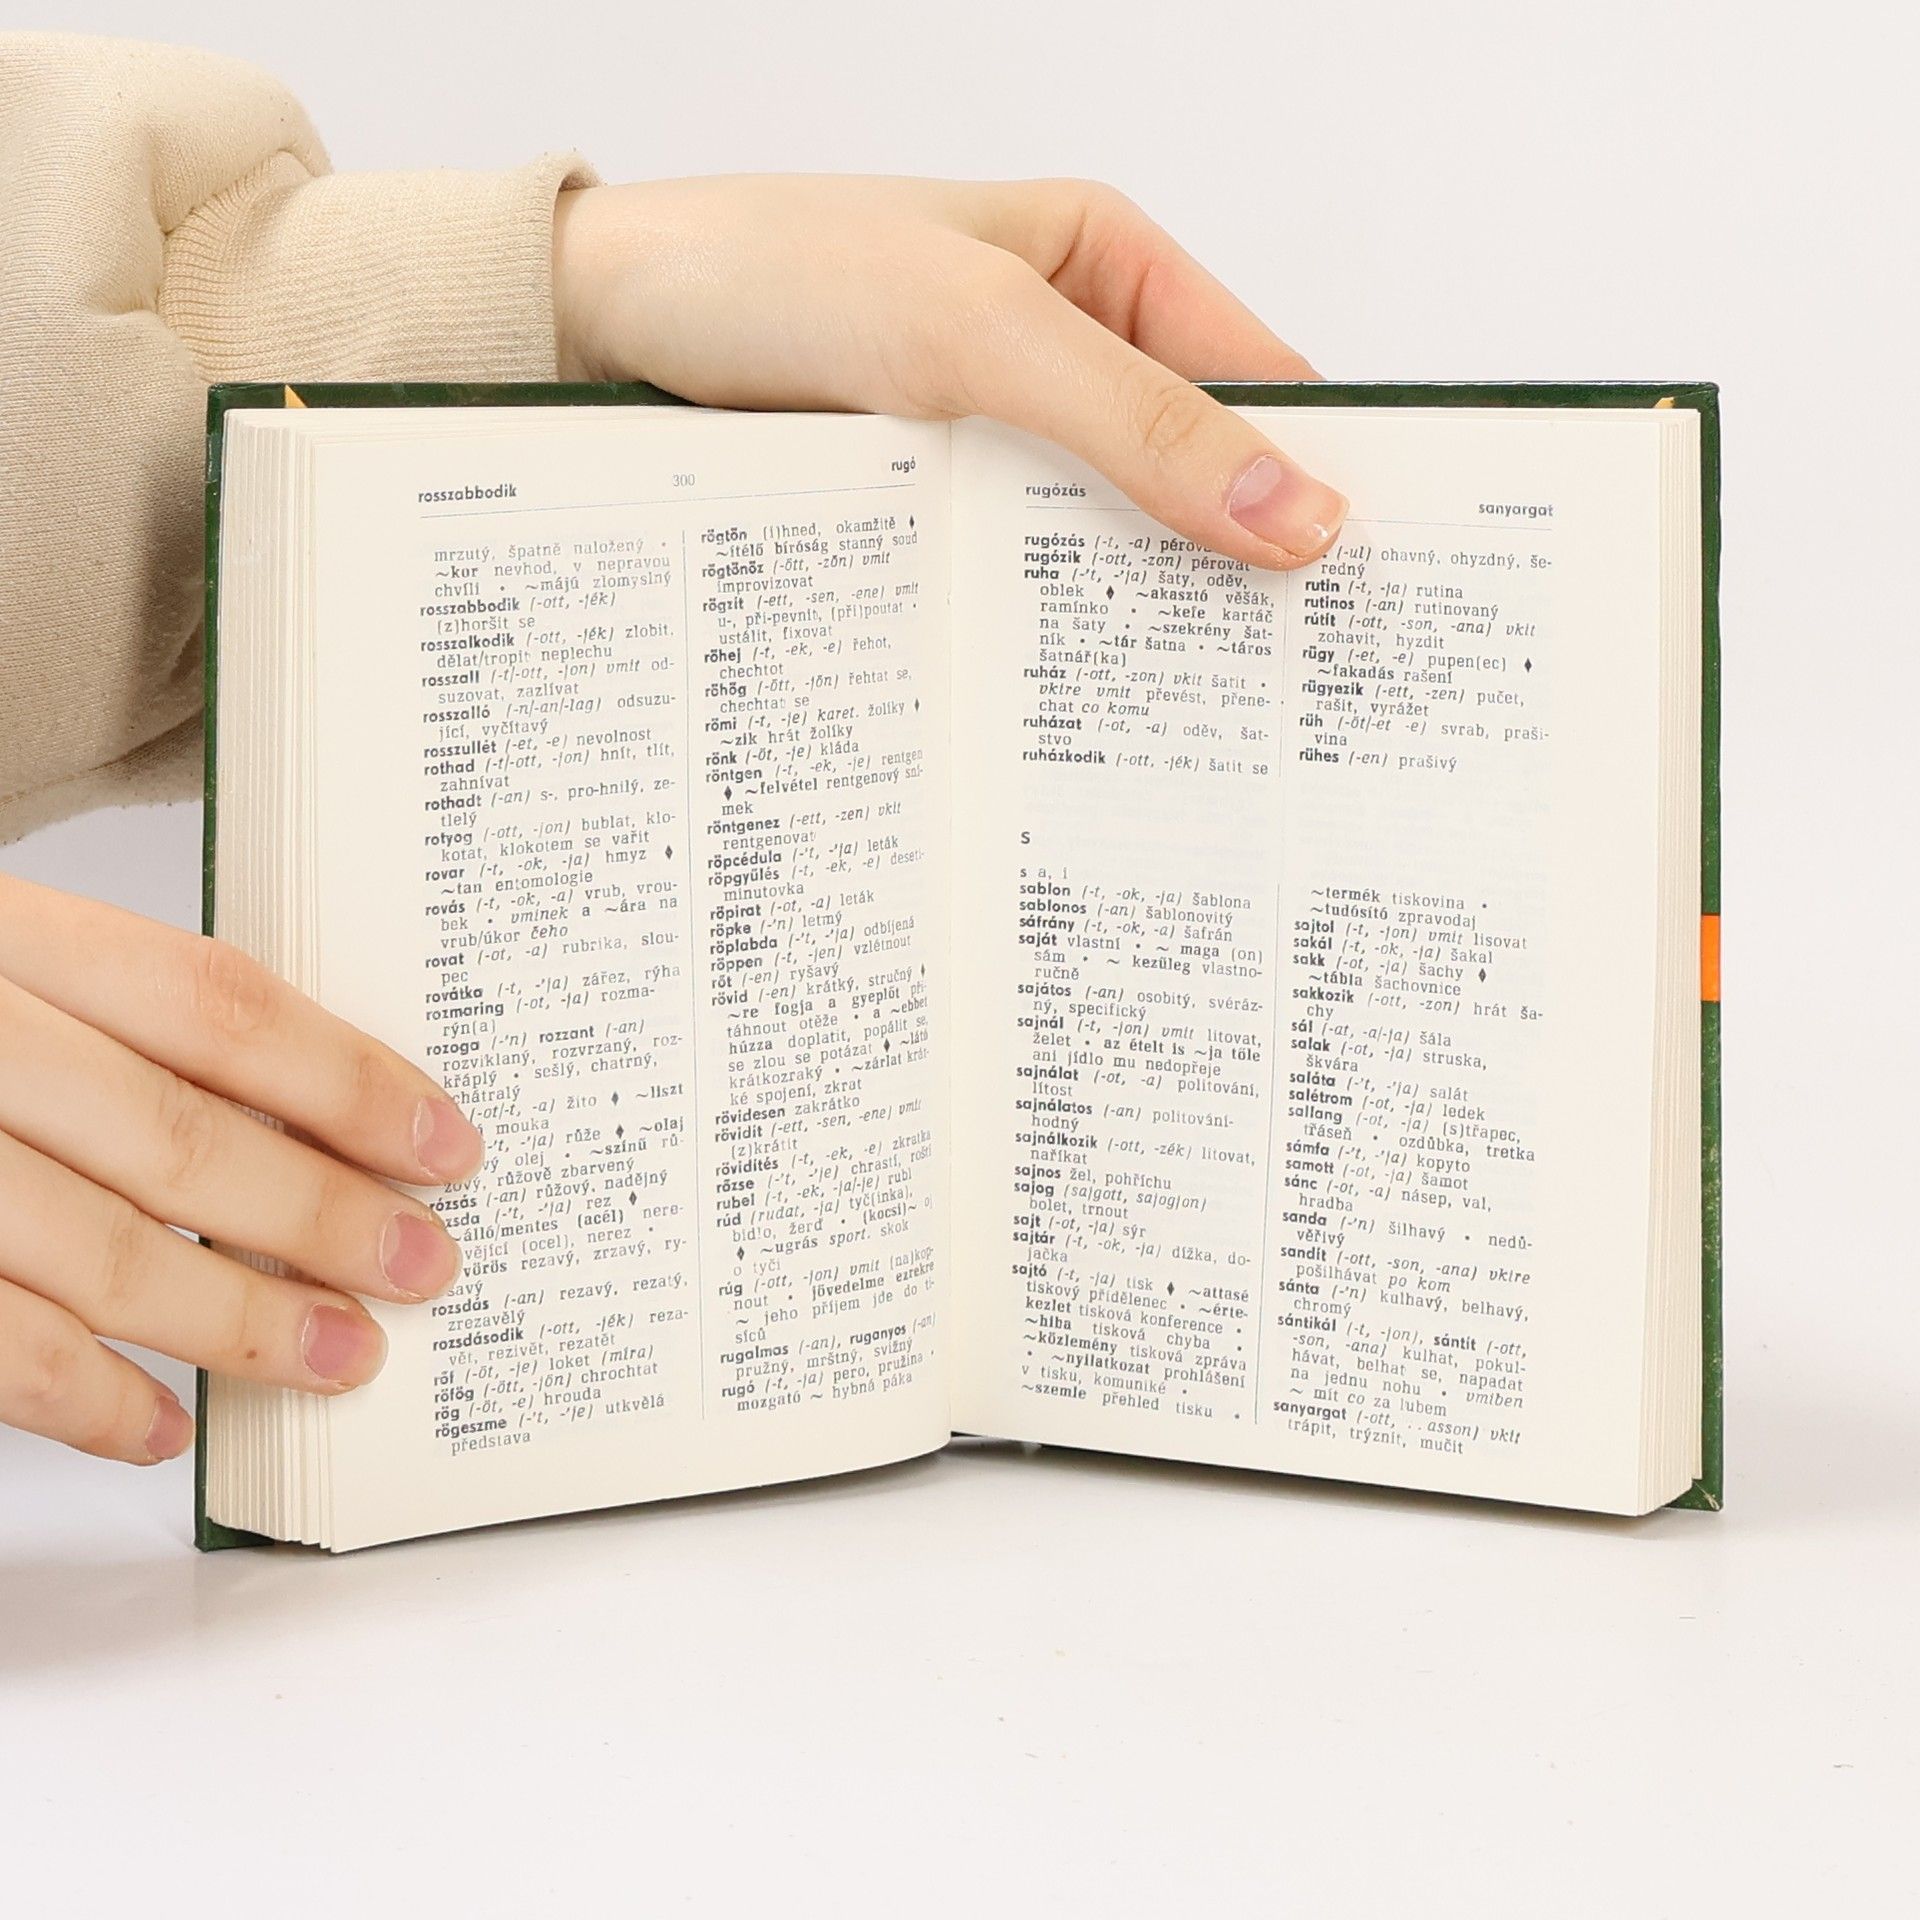 rosszabbodik
300
rugó
mrzutý, špatně naložený •
~kor nevhod, v nepravou
chvíli • ~májú zlomyslný
rosszabbodik (-ott, -jék)
(z)horšit se
rosszalkodik (-ott, -jék) zlobit,
dělat/tropit neplechu
rosszall (-t/-ott, -jon) vmit od-
suzovat, zazlívat
rosszalló (-n/-an/-lag) odsuzu-
jící, vyčítavý
rosszullét (-et, -e) nevolnost
rothad (-t/-ott, -jon) hnít, tlít,
zahnívat
rothadt (-an) s-, pro-hnilý, ze-
tlelý
rotyog (-ott, -jon) bublat, klo-
kotat, klokotem se vařit
rovar (-t, -ok, -ja) hmyz ♦
~tan entomologie
rovás (-t, -ok, -a) vrub, vrou-
bek • vminek a ~ára na
vrub/úkor čeho
rovat (-ot, -a) rubrika, slou-
pec
rovátka (-t, -'ja) zářez, rýha
rozmaring (-ot, -ja) rozma-
rýn(a)
rozoga (-'n) rozzant (-an)
rozviklaný, rozvrzaný, roz-
křáplý • sešlý, chatrný,
chátralý
(-ot/-t, -a) žito ♦ ~liszt
mouka
-'t, -'ja) růže ♦ ~olaj
vý olej • ~színű rů-
žový, růžově zbarvený
rózsás (-an) růžový, nadějný
zsda (-'t, -'ja) rez ♦
~álló/mentes (acél) nere-
vějící (ocel), nerez •
vörös rezavý, zrzavý, ry-
šavý
rozsdás (-an) rezavý, rezatý,
zrezavělý
rozsdásodik (-ott, -jék) reza-
vět, rezivět, rezatět
rőf (-öt, -je) loket (míra)
röfög (-ött, -jön) chrochtat
rög (-öt, -e) hrouda
rögeszme (-'t, -'je) utkvělá
představa
rögtön (i)hned, okamžitě ♦
~ítélő bíróság stanný soud
rögtönöz (-ött, -zön) vmit
improvizovat
rögzít (-ett, -sen, -ene) vmit
u-, při-pevnit, (při)poutat •
ustálit, fixovat
röhej (-t, -ek, -e) řehot,
chechtot
röhög (-ött, -jön) řehtat se,
chechtat se
römi (-t, -je) karet. žolíky ♦
~zik hrát žolíky
rönk (-öt, -je) kláda
röntgen (-t, -ek, -je) rentgen
♦ ~felvétel rentgenový sní-
mek
röntgenez (-ett, -zen) vkit
rentgenovat
röpcédula (-'t, -'ja) leták
röpgyűlés (-t, -ek, -e) deseti-
minutovka
röpirat (-ot, -a) leták
röpke (-'n) letmý
röplabda (-'t, -'ja) odbíjená
röppen (-t, -jen) vzlétnout
rőt (-en) ryšavý
rövid (-en) krátký, stručný ♦
~re fogja a gyeplőt při-
táhnout otěže • a ~ebbet
húzza doplatit, popálit se,
se zlou se potázat ♦ ~látó
krátkozraký • ~zárlat krát-
ké spojení, zkrat
rövidesen zakrátko
rövidít (-ett, -sen, -ene) vmit
(z)krátit
rövidítés (-t, -ek, -e) zkratka
rőzse (-'t, -'je) chrastí, roští
rubel (-t, -ek, -ja/-je) rubl
rúd (rudat, -ja) tyč(inka),
bidlo, žerď • (kocsi)~ oj
♦ ~ugrás sport. skok
o tyči
rúg (-ott, -jon) vmit (na)kop-
nout • jövedelme ezrekre
~ jeho příjem jde do ti-
síců
rugalmas (-an), ruganyos (-an)
pružný, mrštný, svižný
rugó (-t, -ja) pero, pružina •
mozgató ~ hybná páka
rugózás
sanyargat
rugózás (-t, -a) pérov
rugózik (-ott, -zon) pérovat
ruha (-'t, -'ja) šaty, oděv,
oblek ♦ ~akasztó věšák,
ramínko • ~kefe kartáč
na šaty • ~szekrény šat-
ník • ~tár šatna • ~táros
šatnář(ka)
ruház (-ott, -zon) vkit šatit •
vkire vmit převést, přene-
chat co komu
ruházat (-ot, -a) oděv, šat-
stvo
ruházkodik (-ott, -jék) šatit se
(-ul) ohavný, ohyzdný, še-
redný
rutin (-t, -ja) rutina
rutinos (-an) rutinovaný
rútít (-ott, -son, -ana) vkit
zohavit, hyzdit
rügy (-et, -e) pupen(ec) ♦
~fakadás rašení
rügyezik (-ett, -zen) pučet,
rašit, vyrážet
rüh (-öt/-et -e) svrab, praši-
vina
rühes (-en) prašivý
S
s a, i
sablon (-t, -ok, -ja) šablona
sablonos (-an) šablonovitý
sáfrány (-t, -ok, -a) šafrán
saját vlastní • ~ maga (on)
sám • ~ kezűleg vlastno-
ručně
sajátos (-an) osobitý, svéráz-
ný, specifický
sajnál (-t, -jon) vmit litovat,
želet • az ételt is ~ja tőle
ani jídlo mu nedopřeje
sajnálat (-ot, -a) politování,
lítost
sajnálatos (-an) politování-
hodný
sajnálkozik (-ott, -zék) litovat,
naříkat
sajnos žel, pohříchu
sajog (sajgott, sajogjon)
bolet, trnout
sajt (-ot, -ja) sýr
sajtár (-t, -ok, -ja) dížka, do-
jačka
sajtó (-t, -ja) tisk ♦ ~attasé
tiskový přidělenec • ~érte-
kezlet tisková konference •
~hiba tisková chyba •
~közlemény tisková zpráva
• ~nyilatkozat prohlášení
v tisku, komuniké •
~szemle přehled tisku •
~termék tiskovina •
~tudósító zpravodaj
sajtol (-t, -jon) vmit lisovat
sakál (-t, -ok, -ja) šakal
sakk (-ot, -ja) šachy ♦
~tábla šachovnice
sakkozik (-ott, -zon) hrát ša-
chy
sál (-at, -a/-ja) šála
salak (-ot, -ja) struska,
škvára
saláta (-'t, -'ja) salát
salétrom (-ot, -ja) ledek
sallang (-ot, -ja) (s)třapec,
třáseň • ozdůbka, tretka
sámfa (-'t, -'ja) kopyto
samott (-ot, -ja) šamot
sánc (-ot, -a) násep, val,
hradba
sanda (-'n) šilhavý • nedů-
věřivý
sandít (-ott, -son, -ana) vkire
pošilhávat po kom
sánta (-'n) kulhavý, belhavý,
chromý
sántikál (-t, -jon), sántít (-ott,
-son, -ana) kulhat, pokul-
hávat, belhat se, napadat
na jednu nohu • vmiben
~ mít co za lubem
sanyargat (-ott, ..asson) vkit
trápit, trýznit, mučit